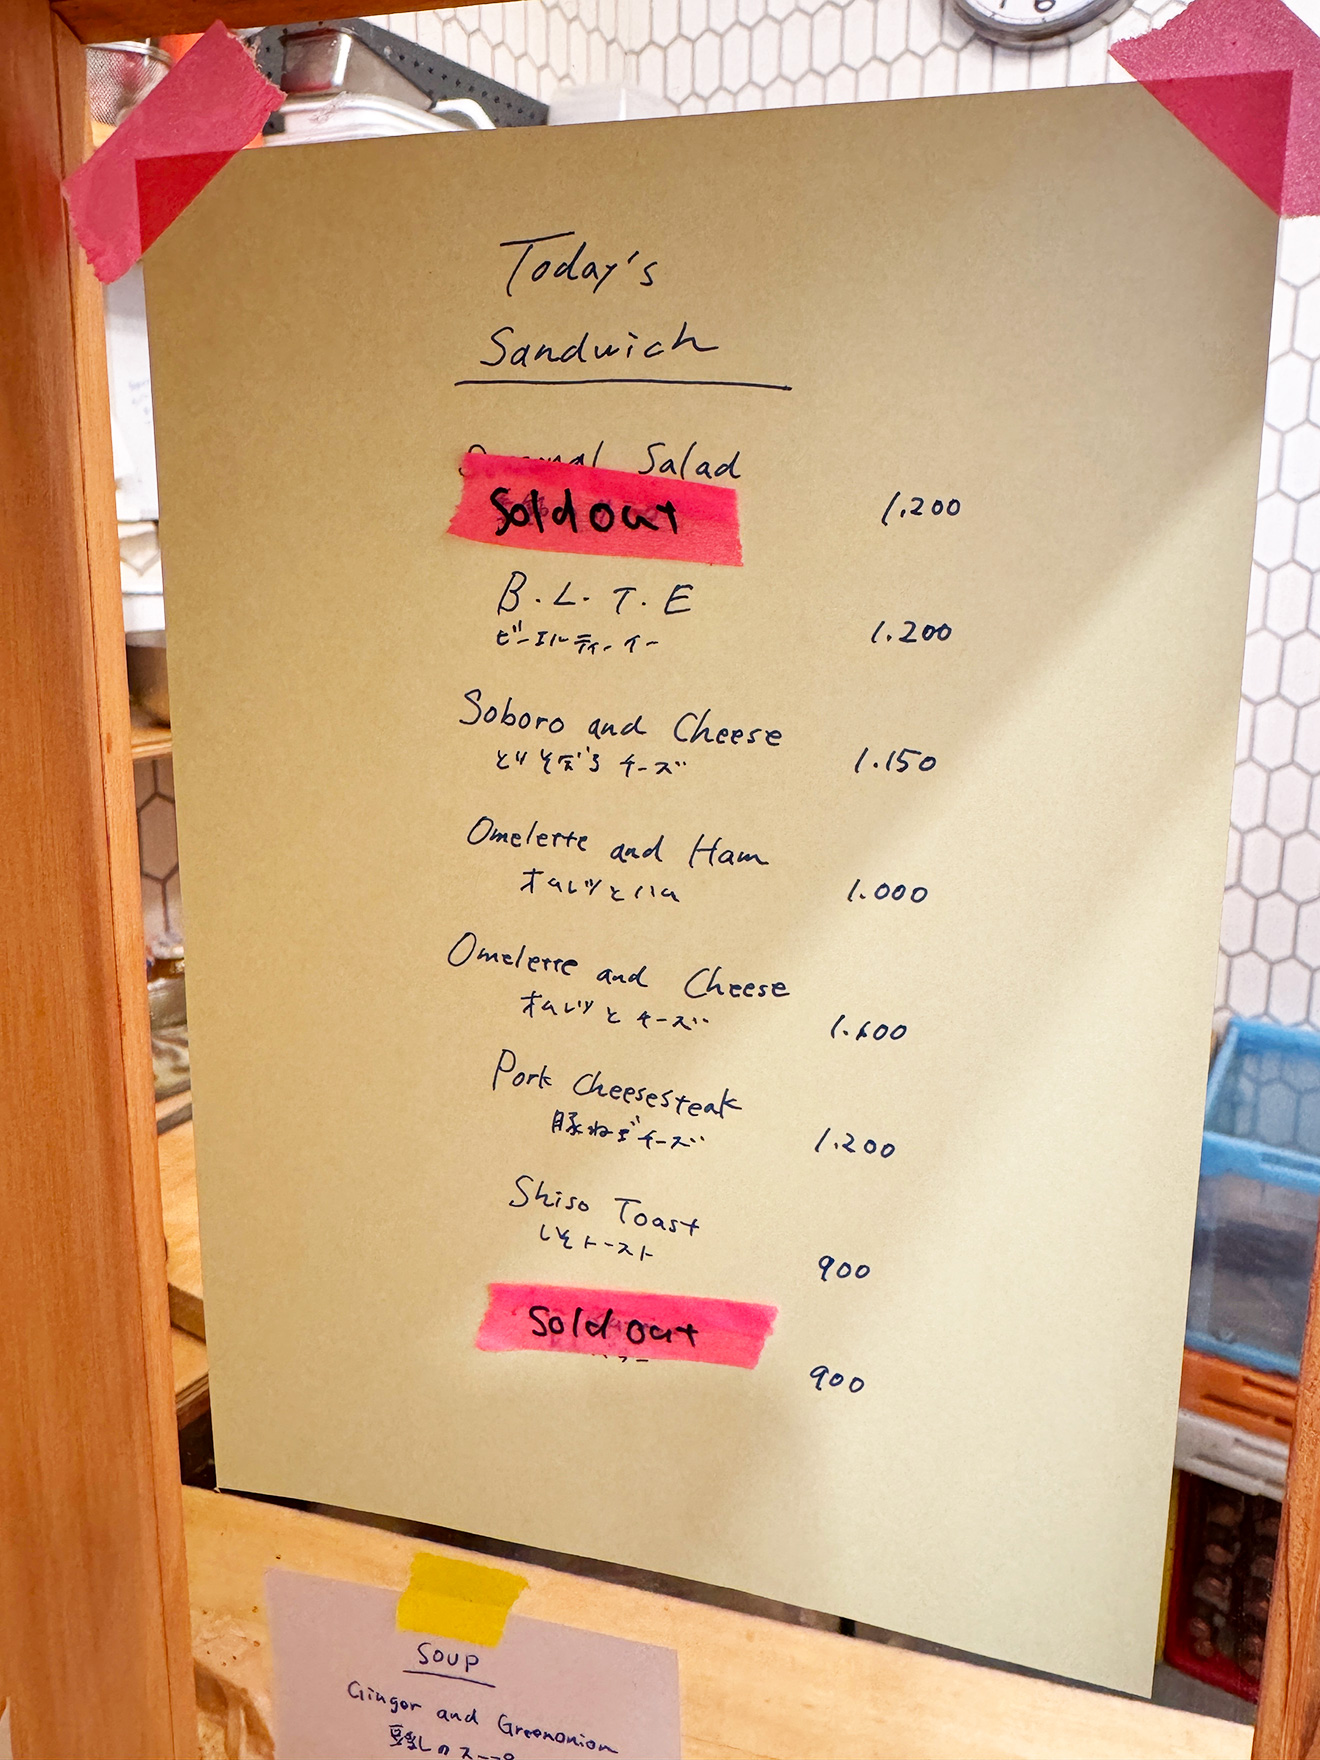 Today's
Sandwich
Salad
Sold out
1.200
B.L.T.E
ビーエルティーイー
1.200
Soboro and Cheese
とりそぼろチーズ
1.150
Omelette and Ham
オムレツとハム
1.000
Omelette and Cheese
オムレツとチーズ
Pork Cheesesteak
豚ねぎチーズ
1.200
Shiso Toast
しそトースト
900
Sold out
900
Soup
Ginger and Greenonion
豆乳のスープ